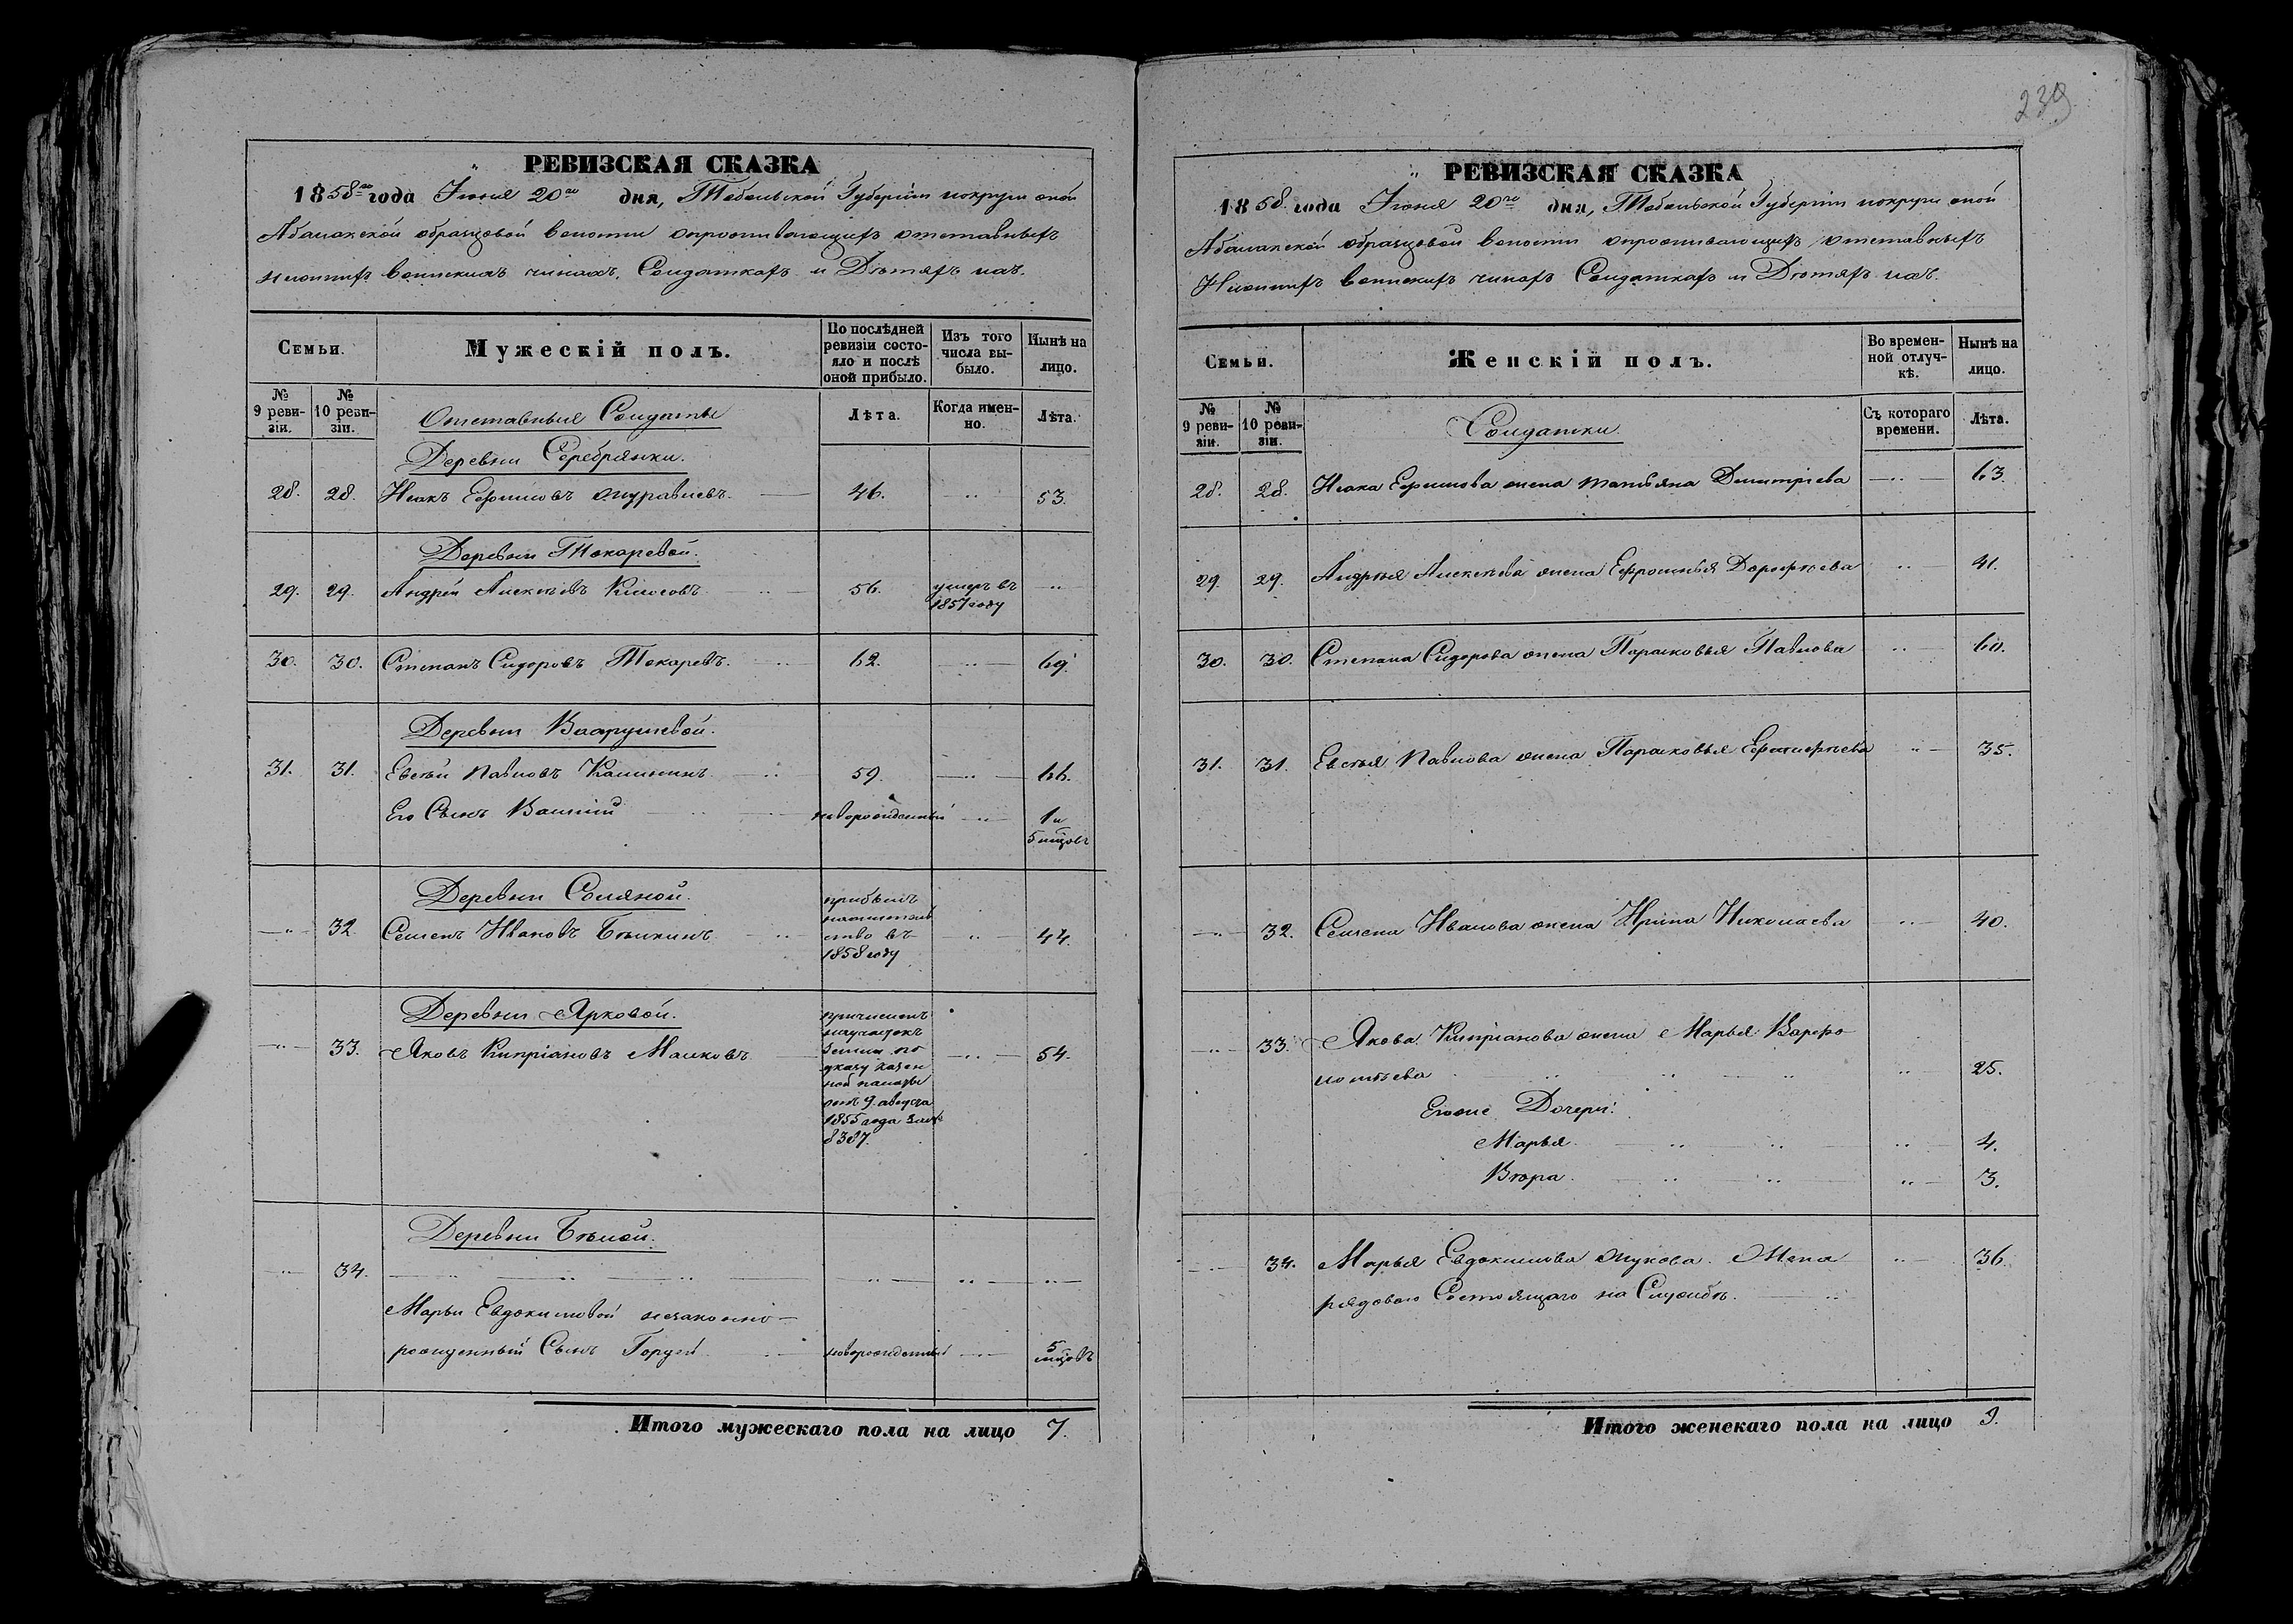 239
РЕВИЗСКАЯ СКАЗКА
1858го года Іюня 20го дня, Тобольской Губерніи и округи оной
Абалакской образцовой волости о проживающихъ отставныхъ
нижнихъ воинскихъ чинахъ, Солдаткахъ и Дѣтяхъ ихъ.
Семьи.
Мужескій полъ.
По послѣдней ревизіи состояло и послѣ оной прибыло.
Изъ того числа выбыло.
Нынѣ на лицо.
№ 9 ревизіи.
№ 10 ревизіи.
Отставныя Солдаты
Лѣта.
Когда именно.
Лѣта.
Деревни Серебрянки.
28. 28. Исакъ Ефимовъ Журавлевъ. 46. 53.
Деревни Токаревой.
29. 29. Андрей Алексѣевъ 56. умеръ въ
1857 году
30. 30. Степанъ Сидоровъ Токаревъ. 62. 69.
Деревни
31. 31. Евсѣй Павловъ Калининъ 59. 66.
Его Сынъ Василій новорожденный 1 и
5 мцовъ
Деревни Соляной.
прибылъ
на жительство въ
1858 году
32 Семенъ Ивановъ Бѣлкинъ 44.
Деревни Ярковой.
33. Яковъ Кипріановъ Малковъ 54.
причисленъ
на участокъ
земли по
указу казен
ной палаты
отъ 9. августа
1855 года за №
8387.
Деревни Бѣлой.
34.
Марьи Евдокимовой незаконно-
рожденный Сынъ Гордей новорожденный 5
мцовъ
Итого мужескаго пола на лицо 7.
РЕВИЗСКАЯ СКАЗКА
1858. года Іюня 20го дня, Тобольской Губерніи и округи оной
Абалакской образцовой волости о проживающихъ отставныхъ
Нижнихъ воинскихъ чинахъ Солдаткахъ и Дѣтяхъ ихъ.
Семьи.
Женскій полъ.
Во временной отлучкѣ.
Нынѣ на лицо.
№ 9 ревизіи.
№ 10 ревизіи.
Солдатки
Съ котораго времени.
Лѣта.
28. 28. Исака Ефимова жена Татьяна Дмитріева 63.
29. 29. Андрея Алексѣева жена Ефросинья Дорофѣева 41.
30. 30. Степана Сидорова жена Парасковья Павлова 60.
31. 31. Евсѣя Павлова жена Парасковья 35.
32. Семена Иванова жена Ирина Николаева 40.
33. Якова Кипріанова жена Марья Варфо
ломѣева 25.
Егоже Дочери:
Марья 4.
Вѣра 3.
34. Марья Евдокимова Жукова. Жена 36.
рядоваго Состоящаго на Службѣ.
Итого женскаго пола на лицо 9.